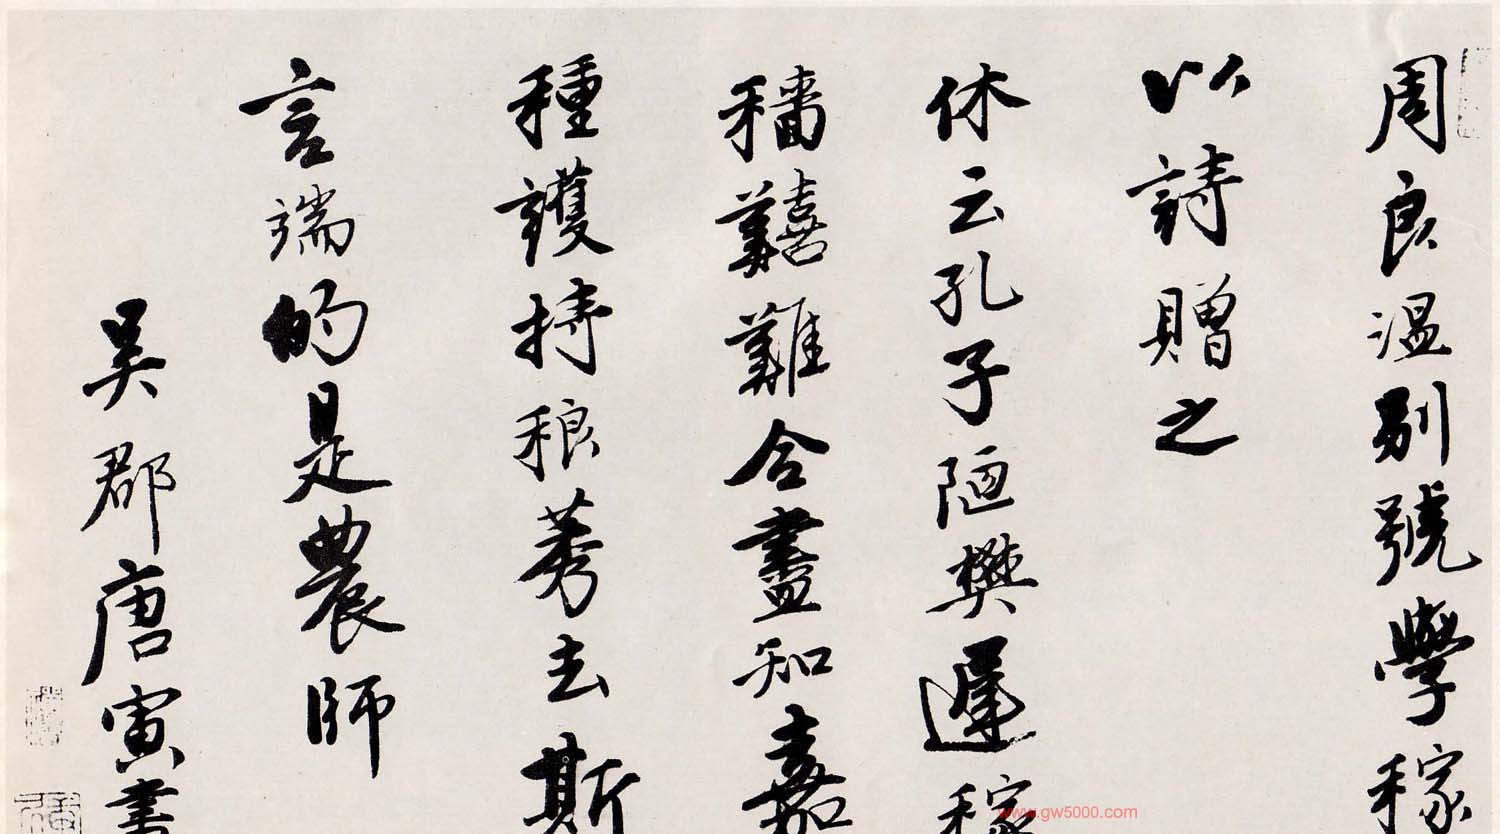 周良溫別號學稼
以詩贈之
休云孔子陋樊遲稼
穡囏難今盡知嘉
種護持稂莠去斯
言端的是農師
吳郡唐寅書
www.gw5000.com